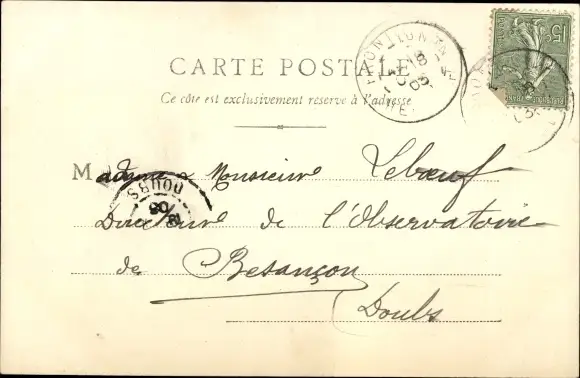 CARTE POSTALE
Ce côté est exclusivement réservé à l'adresse
15c
Madame & Monsieur Lebœuf
Directeur de l'Observatoire
de Besançon
Doubs
DOUBS